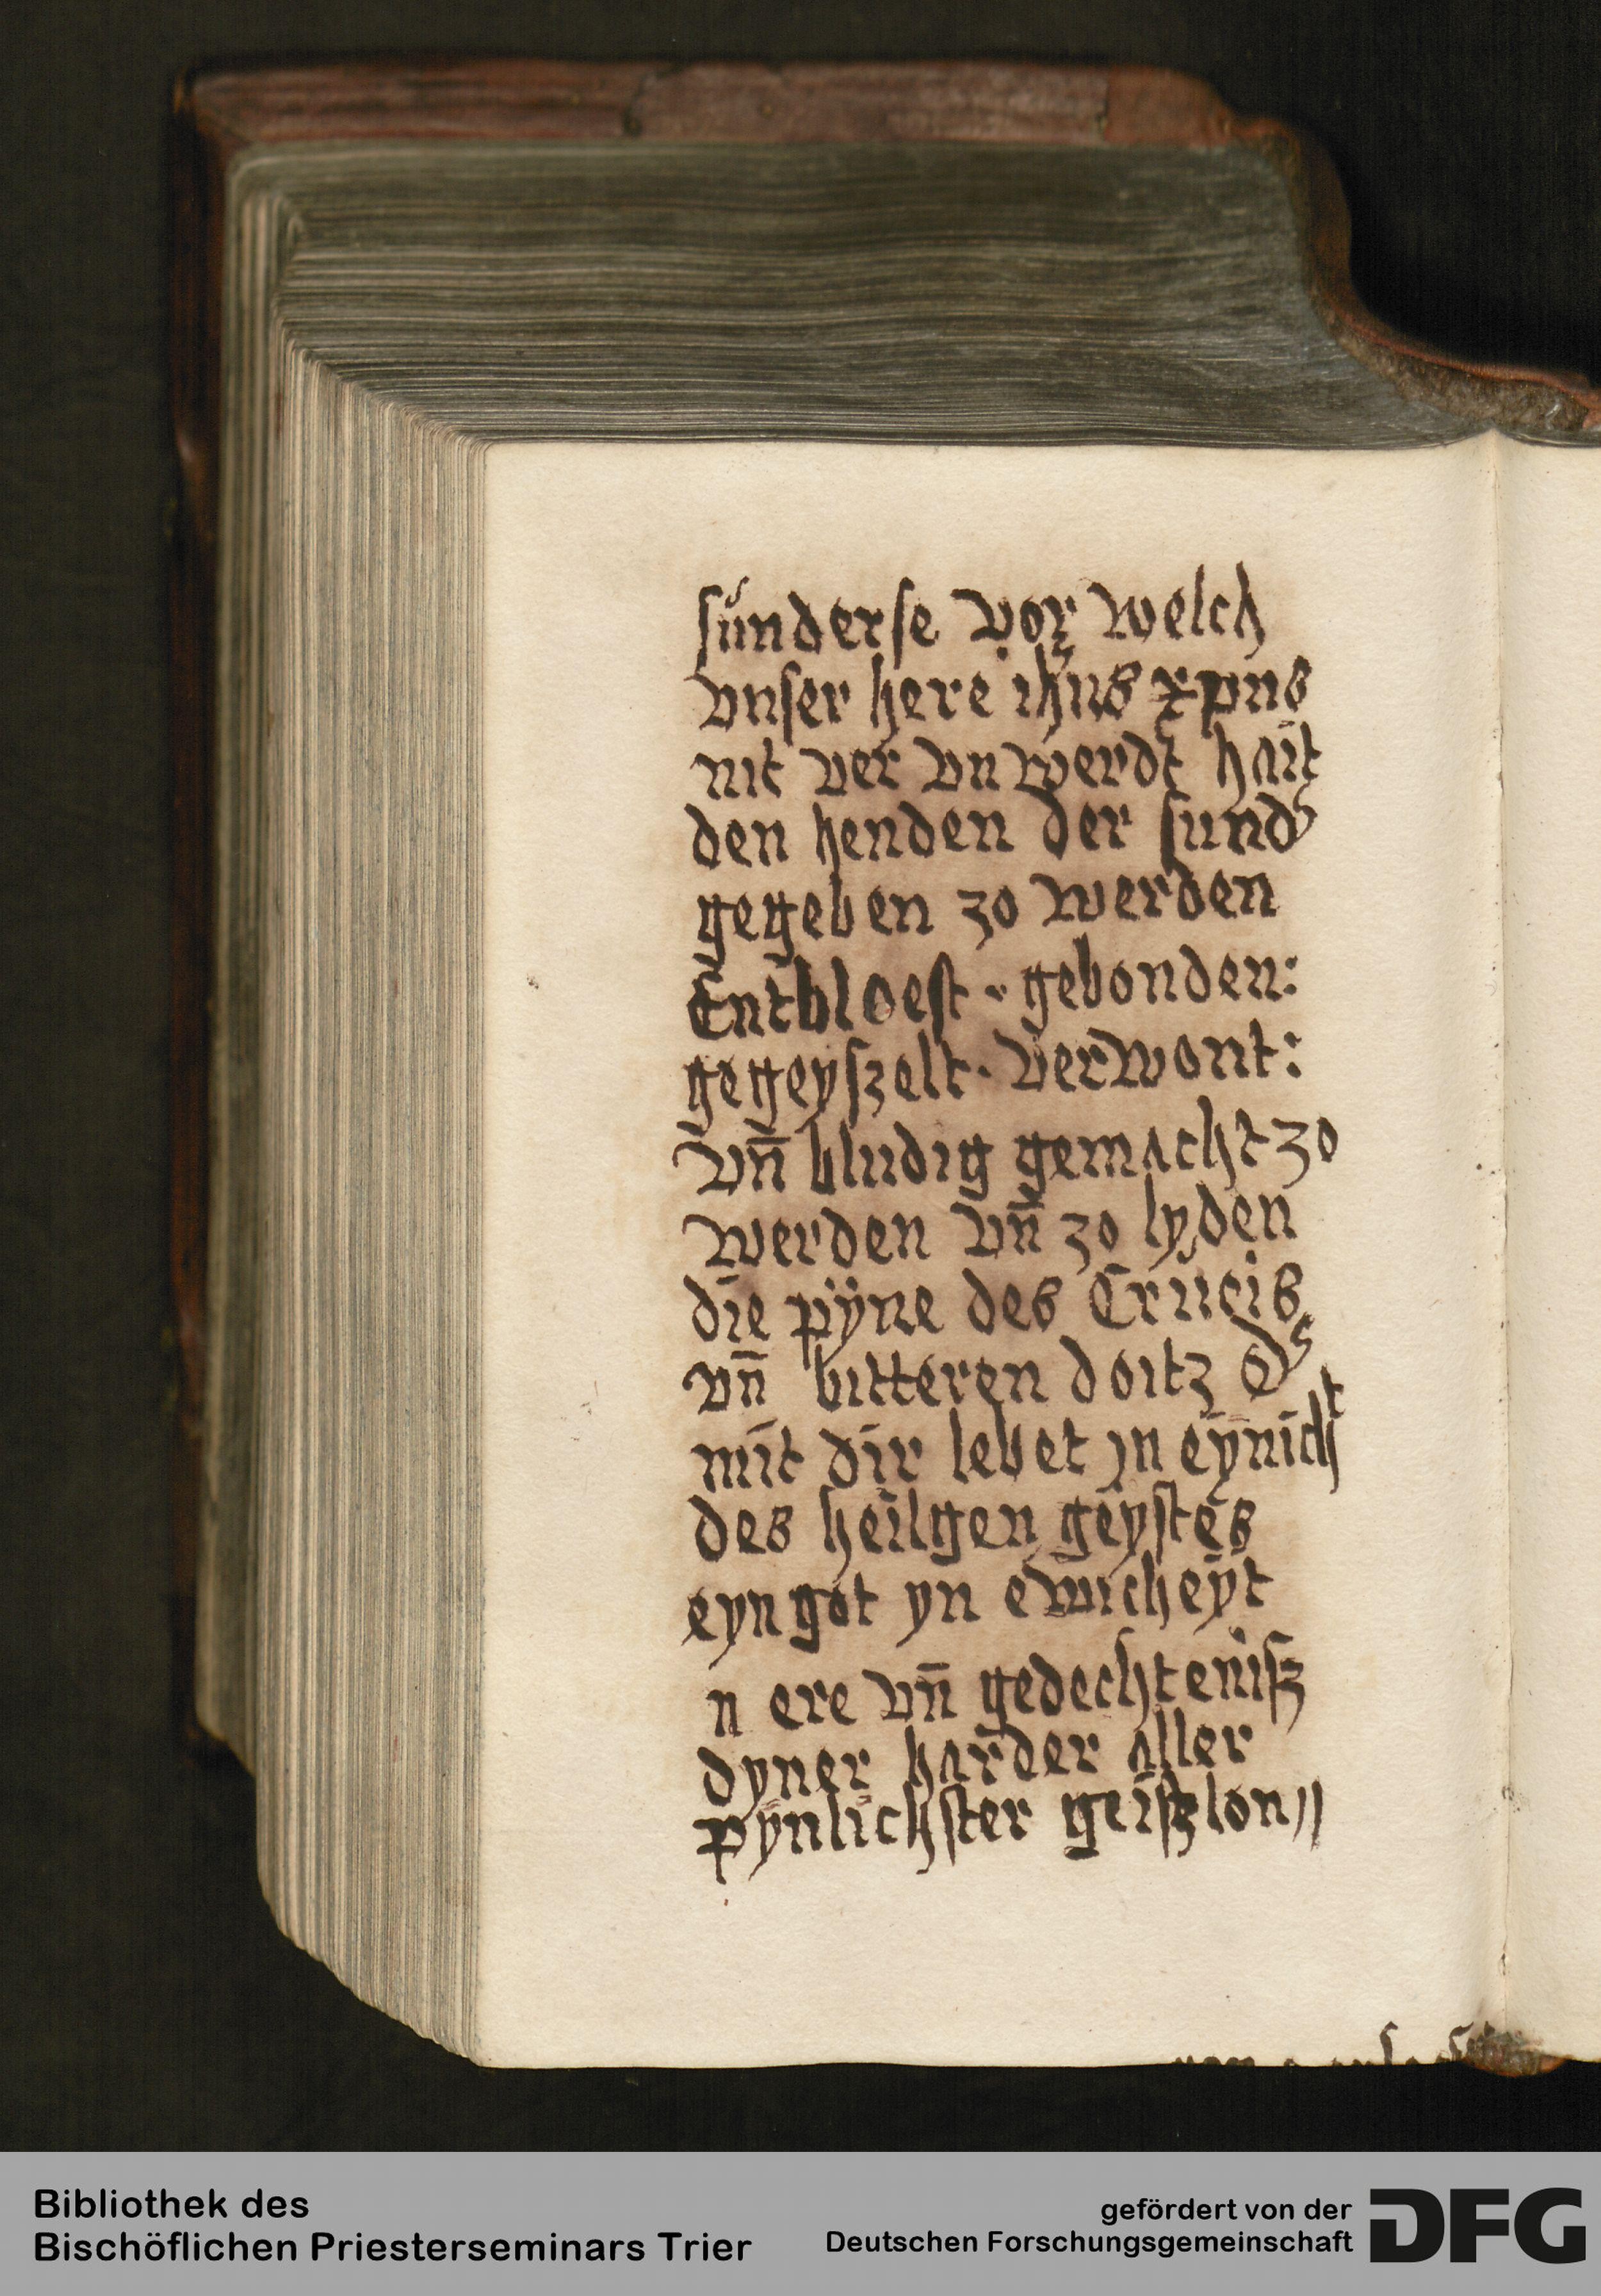 sunderse vor welch
vnser here ihus xpus
nit ver vnwerdt hait
den henden der sund
gegeben zo werden
Entbloest · gebonden:
gegeyszelt · verwont:
vn̄ bludig gemacht zo
werden vn̄ zo lyden
die pÿne des Crucis
vn̄ bitteren doitz d
mit dir lebet jn eynich
des heilgen geystes
eyn got yn ewicheyt
n ere vn̄ gedechtenisz
dyner harder aller
pynlichster geiszlon
Bibliothek des
Bischöflichen Priesterseminars Trier
gefördert von der
Deutschen Forschungsgemeinschaft
DFG